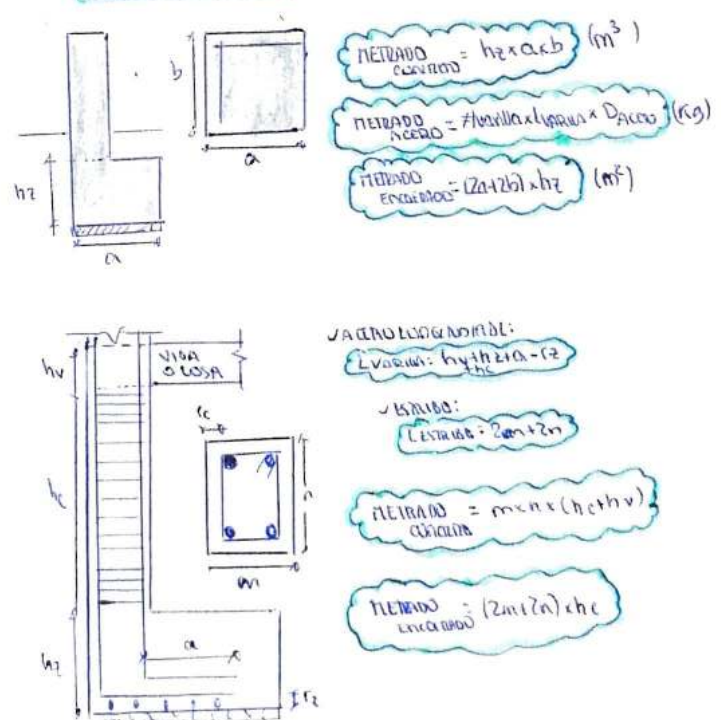 b
a
hz
a
METRADO CONCRETO = hz x a x b (m³)
METRADO ACERO = #varilla x Lvarilla x DACERO (kg)
METRADO ENCOFRADO = (2a+2b) x hz (m²)
hv
VIGA
O LOSA
hc
rc
n
m
hz
a
rz
✓ ACERO LONGITUDINAL:
LVARILLA: hv+hz+a-rz
+hc
✓ ESTRIBO:
LESTRIBO: 2m+2n
METRADO CONCRETO = m x n x (hc+hv)
METRADO ENCOFRADO = (2m+2n) x hc